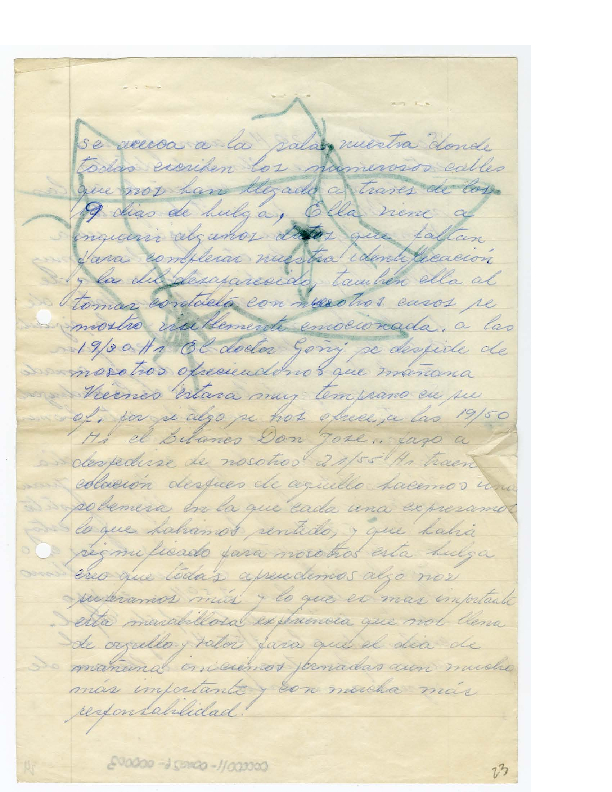 se acerca a la sala nuestra donde
todas escriben los numerosos cables
que nos han llegado a traves de los
9 dias de hulga, Ella viene a
inquirir algunos datos que faltan
para completar nuestra identificación
y la del desaparecido, tambien ella al
tomar contacto con nuestros casos se
mostro visiblemente emocionada. a las
19/30 Hs El doctor Goñy se despide de
nosotros ofreciendonos que mañana
Viernes estara muy temprano en su
of. por si algo se nos ofrecia, a las 19/50
Hs el Don Jose.. paso a
despedirse de nosotros 21/55 Hs traen
colación despues de aquello hacemos una
sobremesa en la que cada una expresamos
lo que habiamos sentido, y que habia
significado para nosotros esta hulga
creo que todas aprendemos algo nos
más y lo que es mas importante
esta marabillosa experiencia que nos llena
de orgullo y valor para que el dia de
mañana iniciemos jornadas aun mucho
más importante y con mucha más
responsabilidad.
23